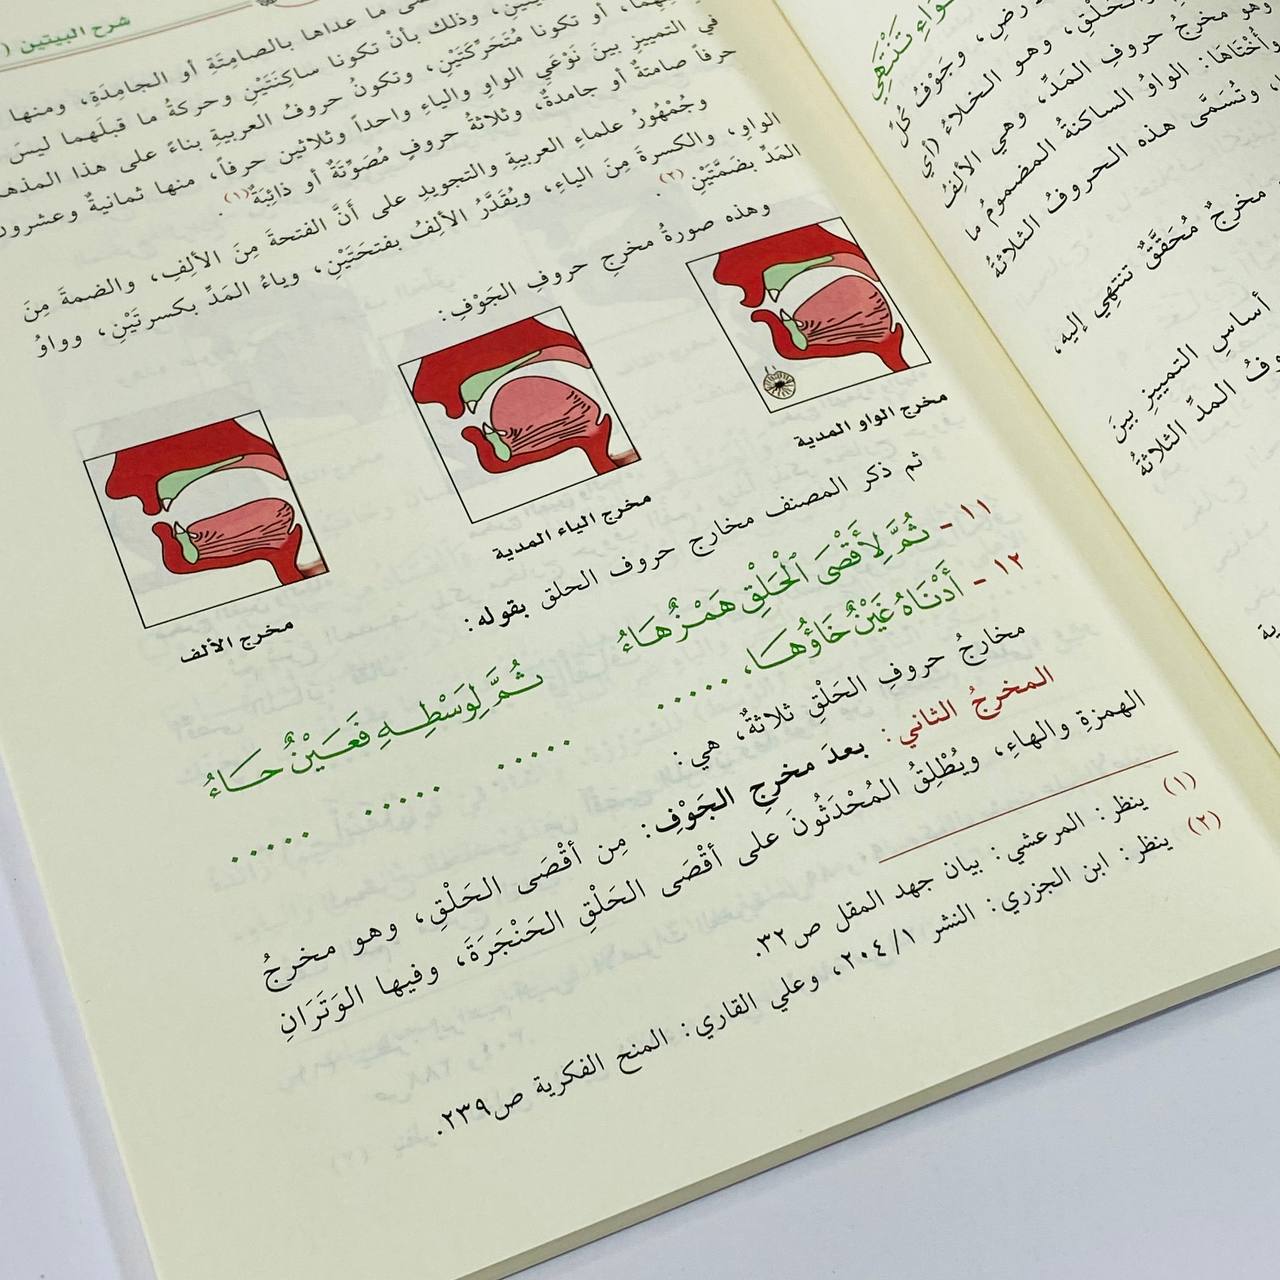 شرح البيتين (
ما عداها بالصامِتَةِ أو الجامِدَةِ، ومنها
وذلك بأنْ تكونا ساكِنَتَيْنِ وحركةُ ما قبلَهما ليسَ
أو تكونا مُتَحَرِّكَتَيْنِ، وتكونُ حروفُ العربيةِ بناءً على هذا
في التمييزِ بينَ نَوْعَيِ الواوِ والياءِ واحداً وثلاثين حرفاً، منها ثمانيةٌ وعشرون
حرفاً صامتةٌ أو جامدةٌ، وثلاثةُ حروفٍ مُصَوِّتَةٌ أو ذائِبَةٌ(١).
وجُمْهُورُ علماءِ العربيةِ والتجويدِ على أَنَّ الفتحةَ مِنَ الألِفِ، والضمةَ مِنَ
الواوِ، والكسرةَ مِنَ الياءِ، ويُقَدَّرُ الألِفُ بفتحَتَيْنِ، وياءُ المَدِّ بكسرتَيْنِ، وواوُ
المَدِّ بضَمَّتَيْنِ(٢).
وهذه صورةُ مخرجِ حروفِ الجَوْفِ:
مخرج الواو المدية
مخرج الياء المدية
مخرج الألف
ثم ذكر المصنف مخارج حروف الحلق بقوله:
١١ - ثُمَّ لِأَقْصَى الْحَلْقِ هَمْزٌ هَاءُ ثُمَّ لِوَسْطِهِ فَعَيْنٌ حَاءُ
١٢ - أَدْنَاهُ غَيْنٌ خَاؤُهَا، ..... ..... ..... .....
مخارجُ حروفِ الحَلْقِ ثلاثةٌ، هي:
المخرجُ الثاني: بعدَ مخرجِ الجَوْفِ: مِن أقْصَى الحَلْقِ، وهو مخرجُ
الهمزةِ والهاءِ، ويُطْلِقُ المُحْدَثُونَ على أقْصَى الحَلْقِ الحَنْجَرَةَ، وفيها الوَتَرَانِ
(١) ينظر: المرعشي: بيان جهد المقل ص٣٢.
(٢) ينظر: ابن الجزري: النشر ٢٠٤/١، وعلي القاري: المنح الفكرية ص٢٣٩.
تَنْتَهِي
وجَوْفُ كُلِّ
وهو الخلاءُ (أي
وهو مخرجُ حروفِ المَدِّ، وهي الألِفُ
وأُخْتَاهَا: الواوُ الساكنةُ المضمومُ ما
وتُسَمَّى هذه الحروفُ الثلاثةُ
مخرجٌ مُحَقَّقٌ تنتهِي إليه،
أساسِ التمييزِ بينَ
المدِّ الثلاثةُ